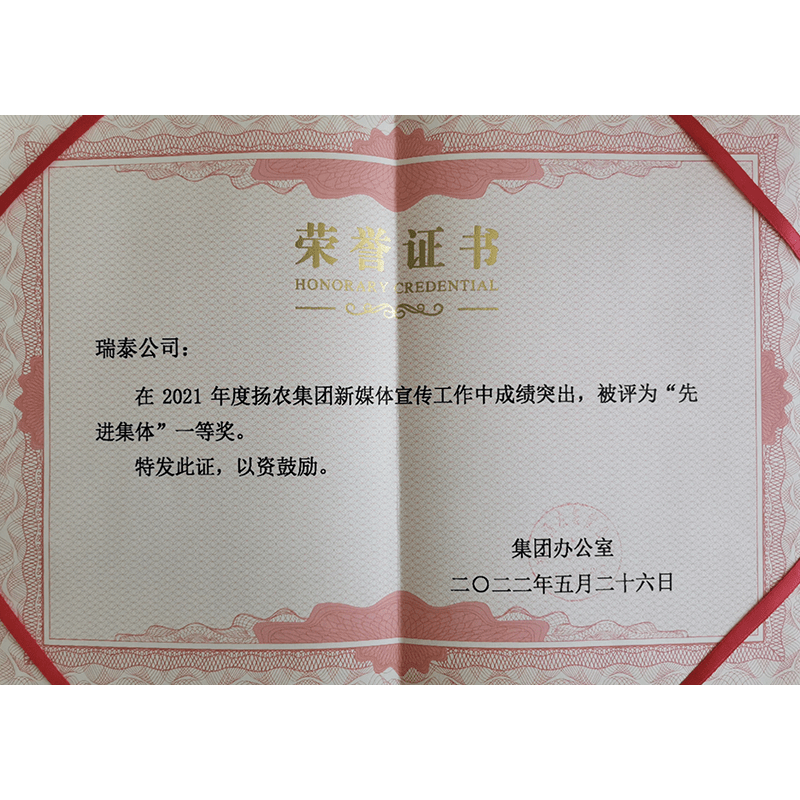 荣誉证书
HONORARY CREDENTIAL
瑞泰公司：
在 2021 年度扬农集团新媒体宣传工作中成绩突出，被评为“先
进集体”一等奖。
特发此证，以资鼓励。
集团办公室
二〇二二年五月二十六日